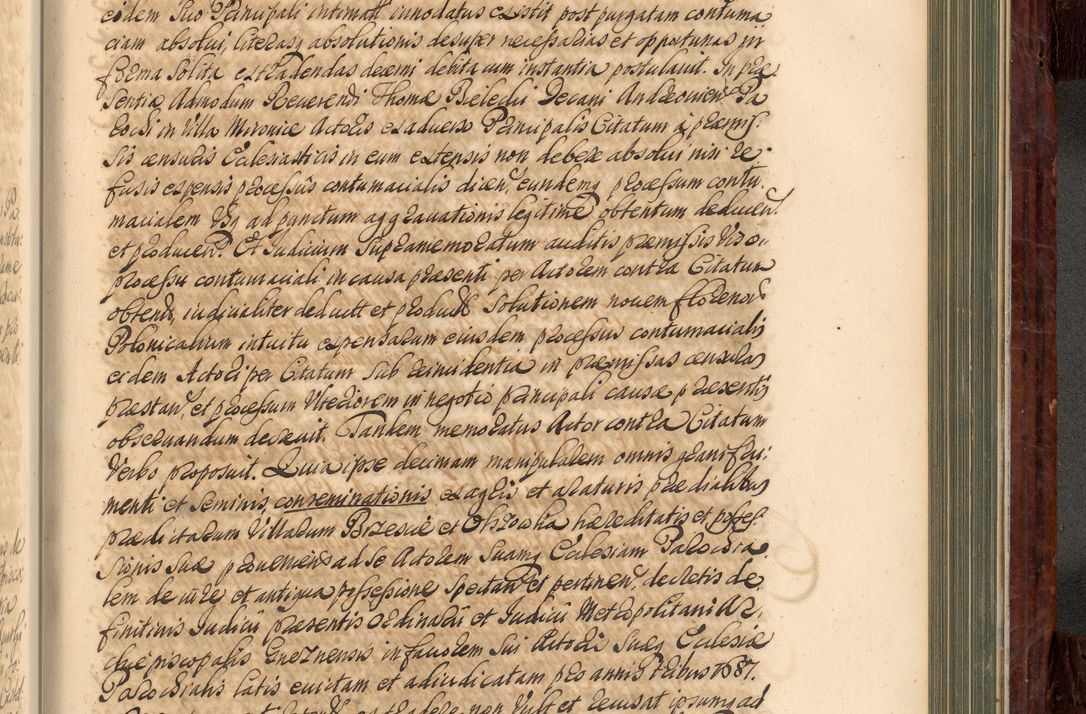 eidem suo Principali intimatt innodatus existit post purgatam contuma
ciam absolui, literasq absolutionis desuper necessarias et opportunas in
forma solita extradendas decerni debita cum instantia postulauit. In prae
sentia Admodum Reuerendi Thomae Beledii Decani Andreouien: Pa
rochi in Villa Mironice Actoris ex aduerso Principalis Citatum a praemis:
sis censuris Ecclesiasticis in eum extensis non debere absolui nisi re:
fusis expensis processus contumacialis dicen: eundemq processum contu:
macialem usq ad punctum aggrauationis legitime obtentum deducen:
et producen: Et Judicium Supramemoratum auditis praemissis Viso
processu contumaciali in causa praesenti per Actorem contra Citatum
obtento, iudicialiter deductt et productt solutionem nouem florenor
Polonicalium intuitu expensarum eiusdem processus contumacialis
eidem Actori per Citatum sub reincidentia in praemissas censuras
praestan: et processum Vlteriorem in negotio principali causae praesentis
obseruandum decreuit. Tandem memoratus Actor contra Citatum
Verbo proposuit. Quia ipse decimam manipulalem omnis grani fru:
menti et seminis, conseminationis ex agris et araturis praedialibus
praedictarum Villarum Brzescie et Chrowka haereditatis et posses
sionis suae prouenien: ad se Actorem suamq Ecclesiam Parochia
lem de iure et antiqua possessione spectan: et pertinen: decretis de
finitiuis Judicii praesentis ordinarii et Judicii Metropolitani Ar
chiepiscopalis Gneznensis in fauorem sui Actoris suaeq Ecclesiae
Parochialis latis euictam et adiudicatam pro annis tribus 1687.
extradere non Vult et recusat ipsumq ad